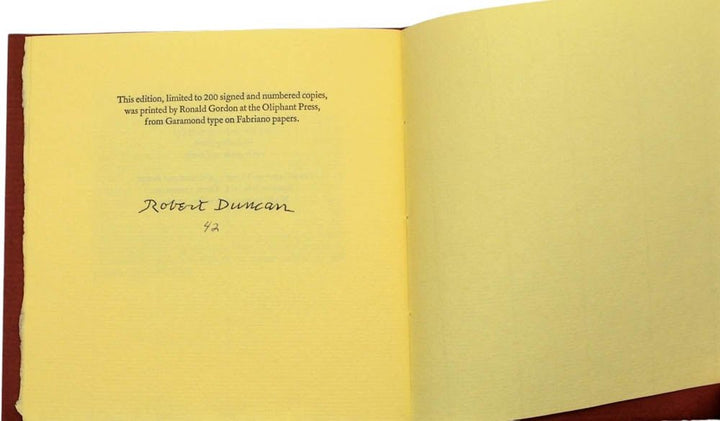 This edition, limited to 200 signed and numbered copies,
was printed by Ronald Gordon at the Oliphant Press,
from Garamond type on Fabriano papers.
Robert Duncan
42